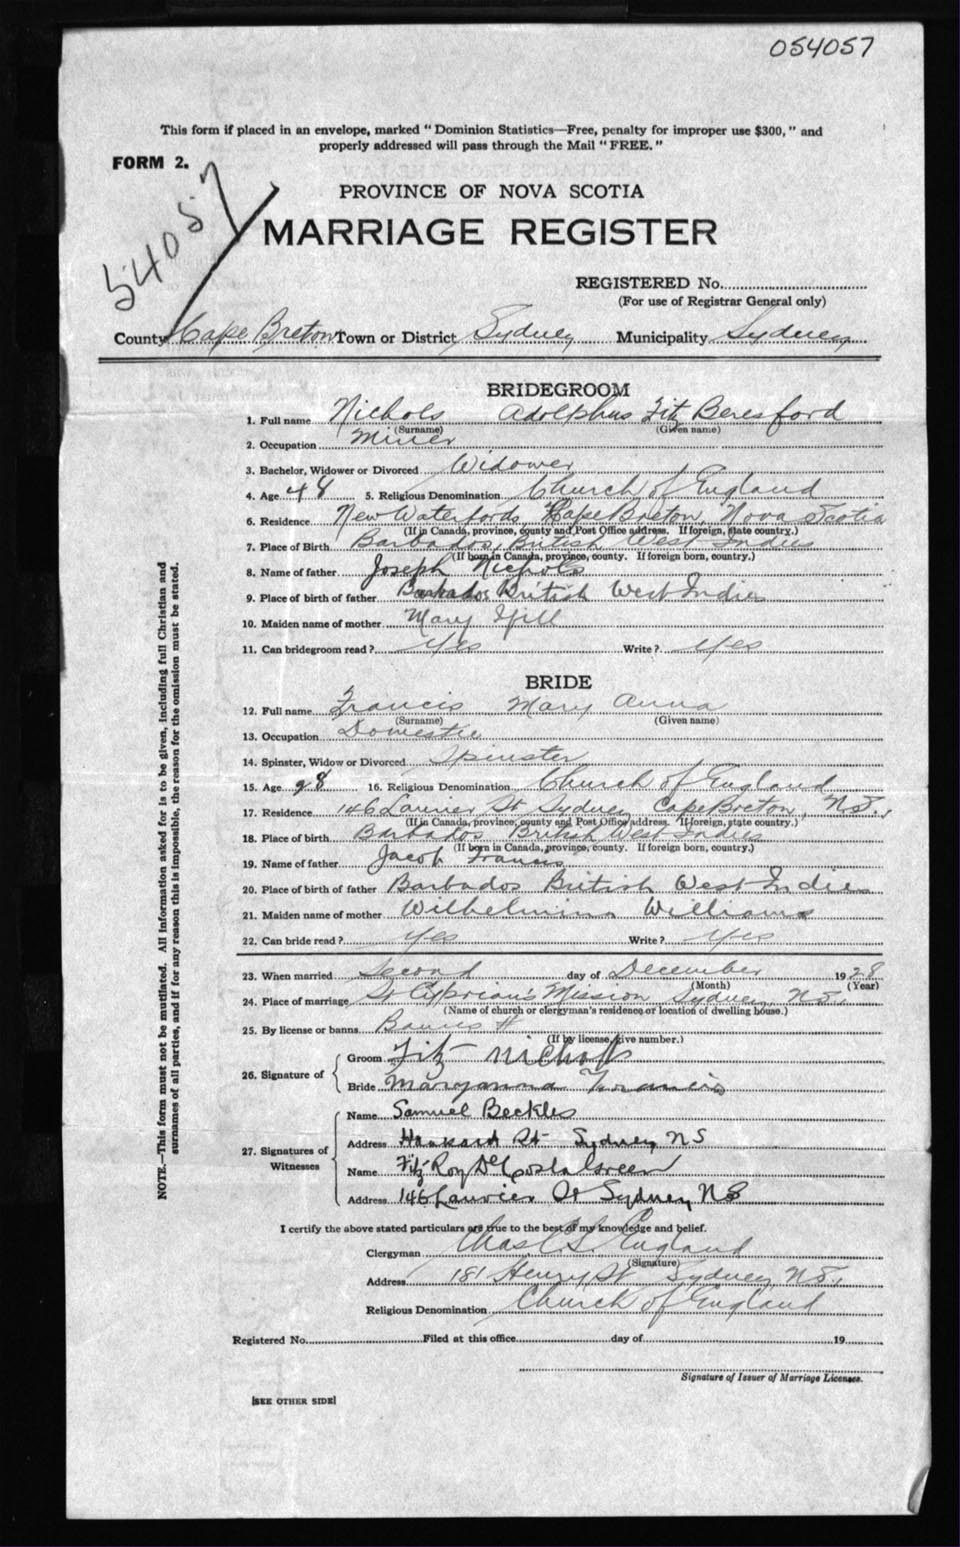 054057
This form if placed in an envelope, marked " Dominion Statistics—Free, penalty for improper use $300, " and
properly addressed will pass through the Mail " FREE. "
FORM 2.
54057
PROVINCE OF NOVA SCOTIA
MARRIAGE REGISTER
REGISTERED No.
(For use of Registrar General only)
County Cape Breton Town or District Sydney Municipality Sydney
BRIDEGROOM
1. Full name Nichols Adolphus Fitz Beresford
(Surname) (Given name)
2. Occupation Miner
3. Bachelor, Widower or Divorced Widower
4. Age 48 5. Religious Denomination Church of England
6. Residence New Waterford, Cape Breton, Nova Scotia
(If in Canada, province, county and Post Office address. If foreign, state country.)
7. Place of Birth Barbados, British West Indies
(If born in Canada, province, county. If foreign born, country.)
8. Name of father Joseph Nichols
9. Place of birth of father Barbados British West Indies
10. Maiden name of mother Mary
11. Can bridegroom read? Yes Write? Yes
BRIDE
12. Full name Francis Mary Anna
(Surname) (Given name)
13. Occupation Domestic
14. Spinster, Widow or Divorced Spinster
15. Age 28 16. Religious Denomination Church of England
17. Residence 146 Laurier St Sydney Cape Breton, N.S.,
(If in Canada, province, county and Post Office address. If foreign, state country.)
18. Place of birth Barbados British West Indies
(If born in Canada, province, county. If foreign born, country.)
19. Name of father Jacob Francis
20. Place of birth of father Barbados British West Indies
21. Maiden name of mother Wilhelmina Williams
22. Can bride read? Yes Write? Yes
23. When married Second day of December 1928
(Month) (Year)
24. Place of marriage St Cyprian's Mission Sydney, N.S.,
(Name of church or clergyman's residence or location of dwelling house.)
25. By license or banns Banns
(If by license, give number.)
26. Signature of
Groom Fitz Nicholls
Bride Maryanna Francis
27. Signatures of Witnesses
Name Samuel Beckles
Address Hankard St Sydney NS
Name Fitz Roy DeCosta Green
Address 146 Laurier St Sydney NS
I certify the above stated particulars are true to the best of my knowledge and belief.
Clergyman Chas England
(Signature)
Address 181 Henry St Sydney N.S.,
Religious Denomination Church of England
Registered No. Filed at this office day of 19
Signature of Issuer of Marriage Licenses.
[SEE OTHER SIDE]
NOTE.—This form must not be mutilated. All information asked for is to be given, including full Christian and
surnames of all parties, and if for any reason this is impossible, the reason for the omission must be stated.